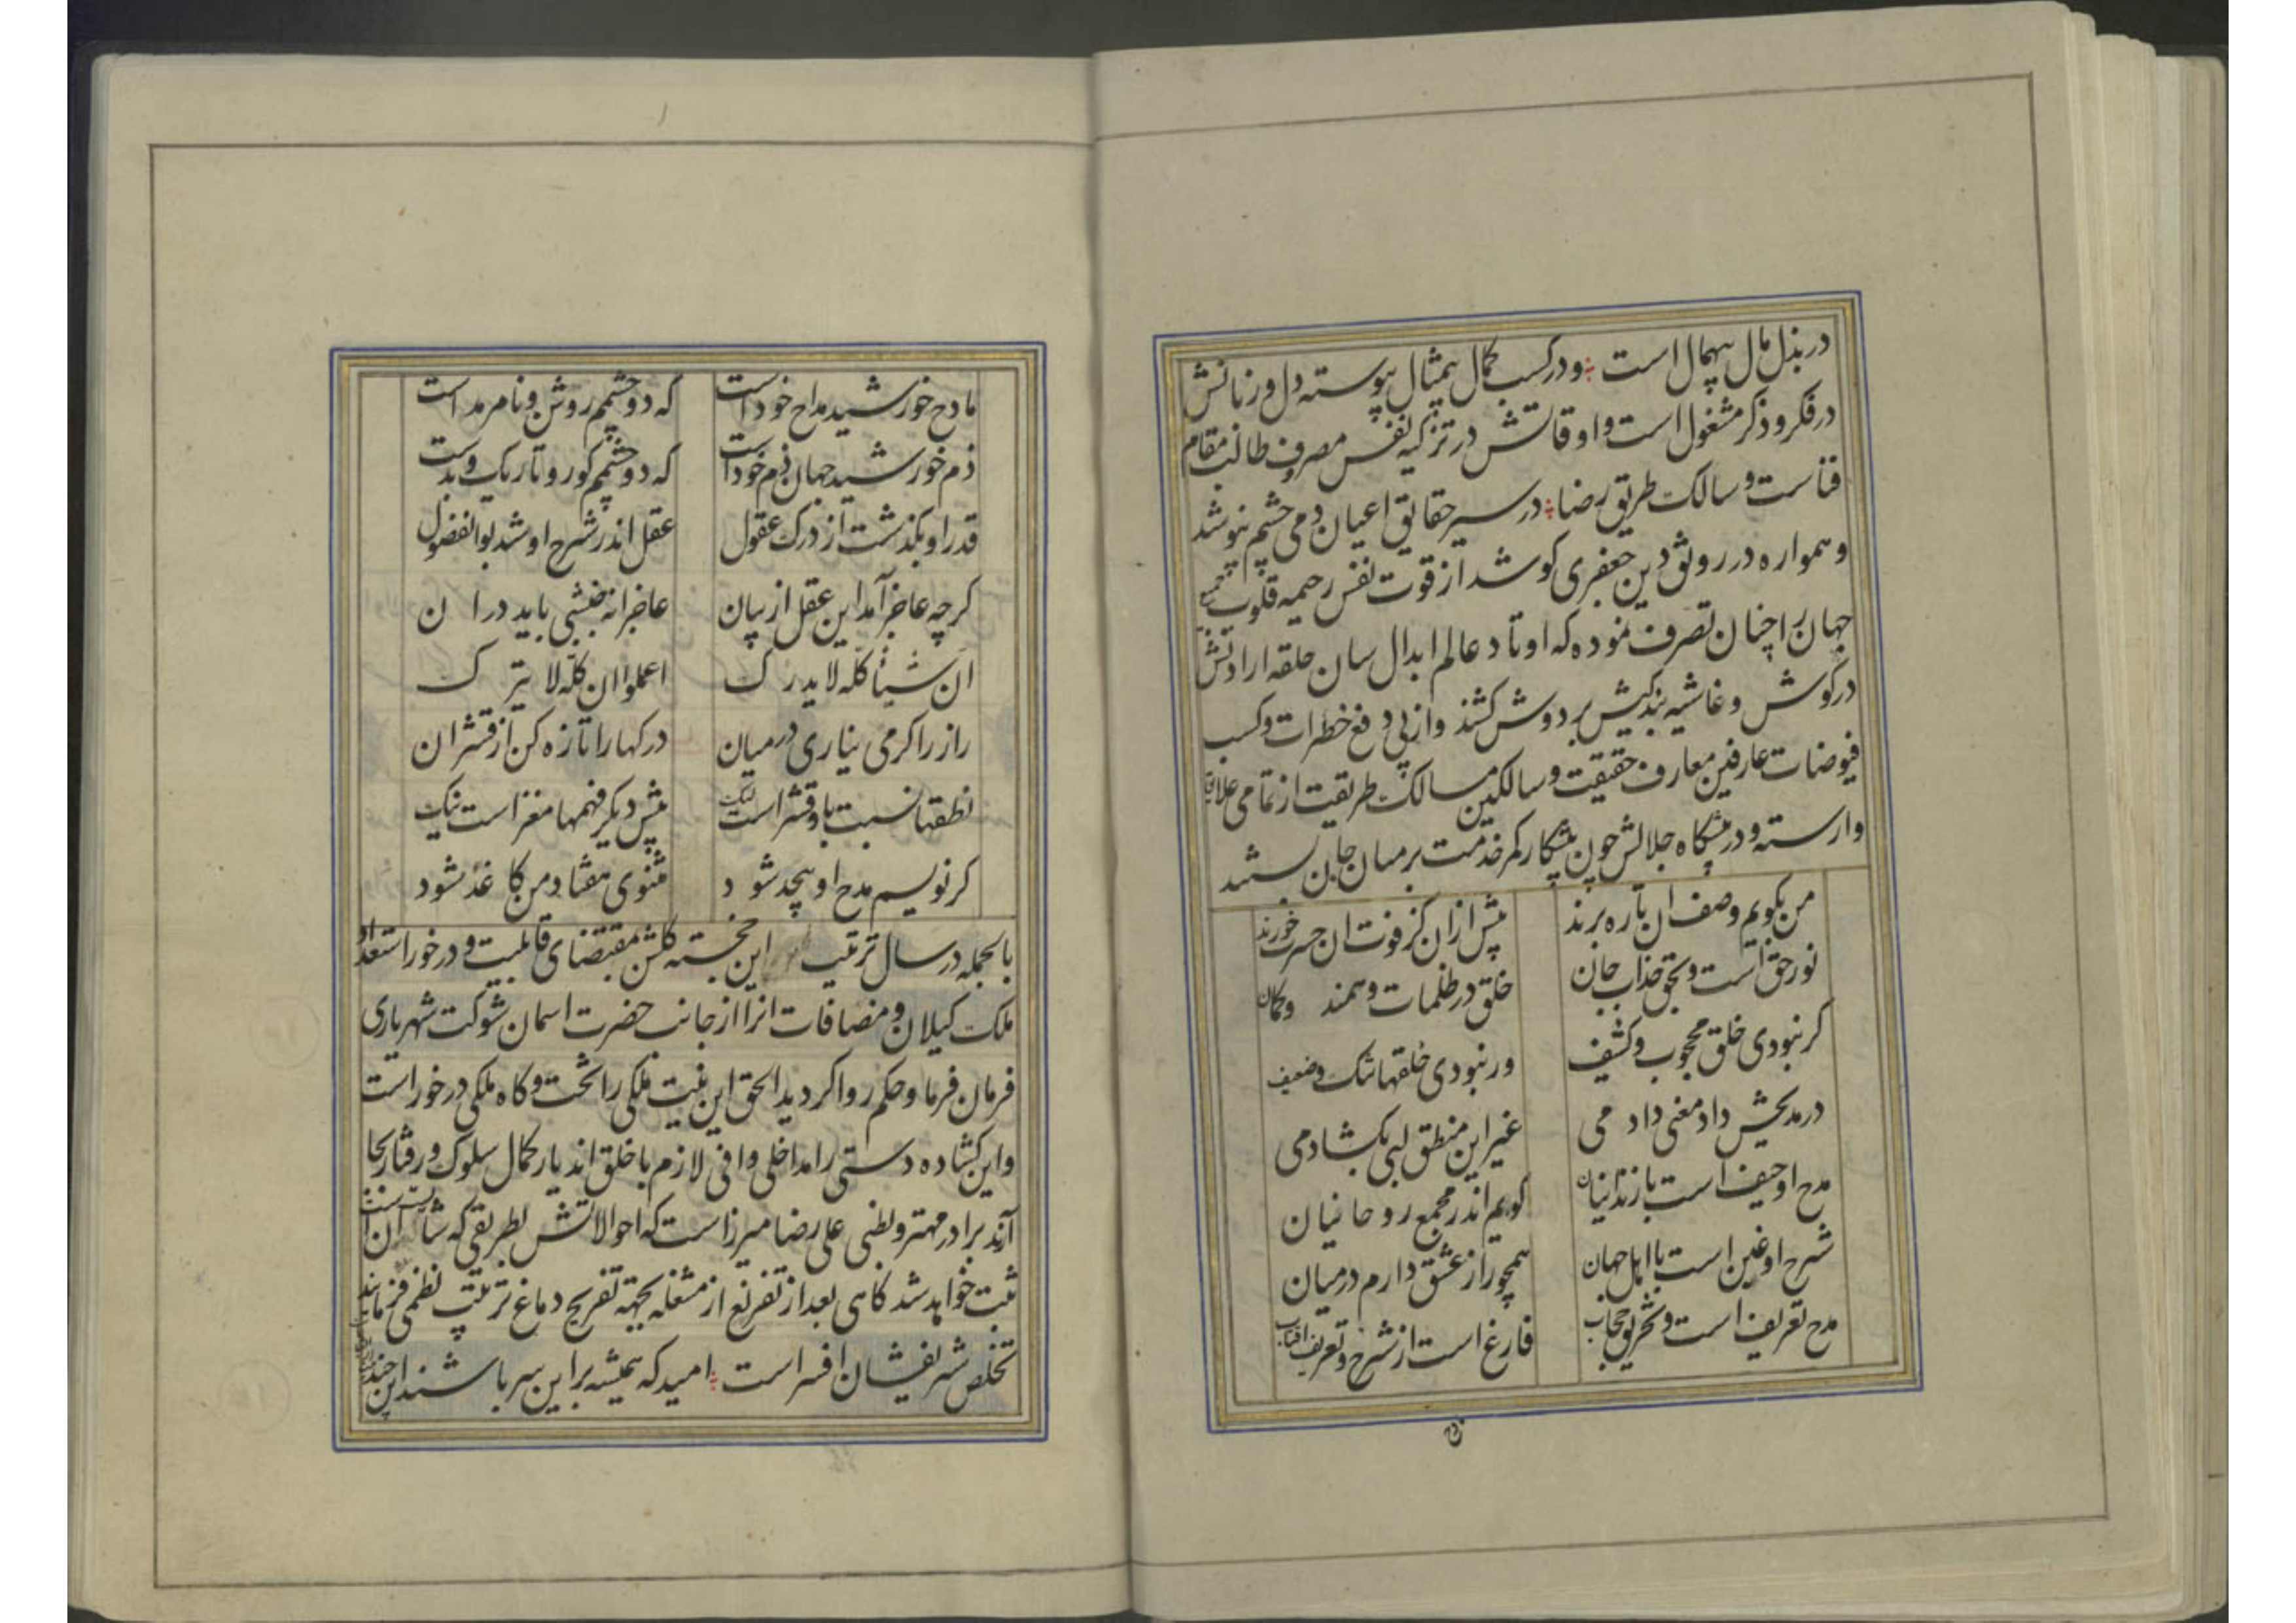 در بذل مال بیهمال است و در کسب کمال بیمثال پیوسته دل و زبانش
در فکر و ذکر مشغول است و اوقاتش در تزکیه نفس مصروف طالب مقام
فناست و سالک طریق رضا در سیر حقایق اعیان دمی چشم نپوشد
و همواره در رونق دین جعفری کوشد از قوت نفس رحیمه قلوب جمیع
جهان را چنان تصرف نموده که اوتاد عالم ابدال سان حلقه ارادتش
در کوش و غاشیه بندکیش بر دوش کشند و از پی دفع خطرات و کسب
فیوضات عارفین معارف حقیقت و سالکین مسالک طریقت از تمامی علایق
وارسته و در پیشکاه جلالش چون پیشکار کمر خدمت بر میان جان بستند
من بکویم وصف ان تا ره برند پیش از ان کز فوت ان حسرت خورند
نور حق است و بحق جذاب جان خلق در ظلمات وهمند و کمان
کر نبودی خلق محجوب و کثیف ور نبودی خلقها تنک و ضعیف
در مدیحش داد معنی دادمی غیر این منطق لبی بکشادمی
مدح او حیف است با زندانیان کویم اندر مجمع روحانیان
شرح او غبن است با اهل جهان همچو راز عشق دارم در میان
مدح تعریف است و تخریق حجاب فارغ است از شرح و تعریف افتاب
مادح خورشید مداح خود است که دو چشمم روشن و نامرمد است
ذم خورشید جهان ذم خود است که دو چشمم کور و تاریک و بد است
قدر او بکذشت از درک عقول عقل اندر شرح او شد بوالفضول
کر چه عاجز آمد این عقل از بیان عاجزانه جنبشی باید در ان
ان شیئا کله لا یدرک اعلموا ان کله لا یترک
راز را کر می نیاری در میان درکها را تازه کن از قشر ان
نطقها نسبت باو قشر است لیک پیش دیکر فهمها مغز است نیک
کر نویسم مدح او بیحد شود مثنوی هفتاد من کاغذ شود
بالجمله در سال ترتیب این خجسته کلشن بمقتضای قابلیت و در خور استعداد او
ملک کیلان و مضافات انرا از جانب حضرت اسمان شوکت شهریاری
فرمان فرما و حکم روا کردید الحق این بنیت ملکی را تخت و کاه ملکی در خور است
و این کشاده دستی را مداخلی وافی لازم با خلق اندیار کمال سلوک و رفتار بجا
آرند برادر مهتر و بطنی علی رضا میرزا است که احوالاتش بطریقی که شان ان است
ثبت خواهد شد کاهی بعد از تفریغ از مشغله بجهه تفریح دماغ ترتیب نظمی فرمایند
تخلص شریفشان افسر است امید که همیشه بر این سر باشند این چند